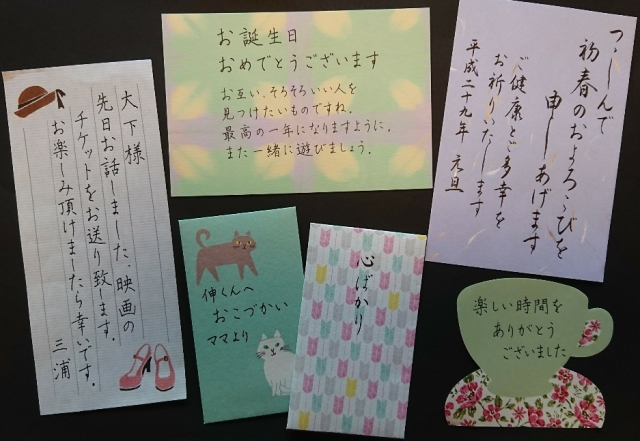 大下様
先日お話しました、映画の
チケットをお送り致します。
お楽しみ頂けましたら幸いです。
三浦
お誕生日
おめでとうございます
お互い、そろそろいい人を
見つけたいものですね。
最高の一年になりますように。
また一緒に遊びましょう。
つゝしんで
初春のおよろこびを
申しあげます
ご健康とご多幸を
お祈りいたします
平成二十九年 元旦
伸くんへ
おこづかい
ママより
心ばかり
楽しい時間を
ありがとう
ございました